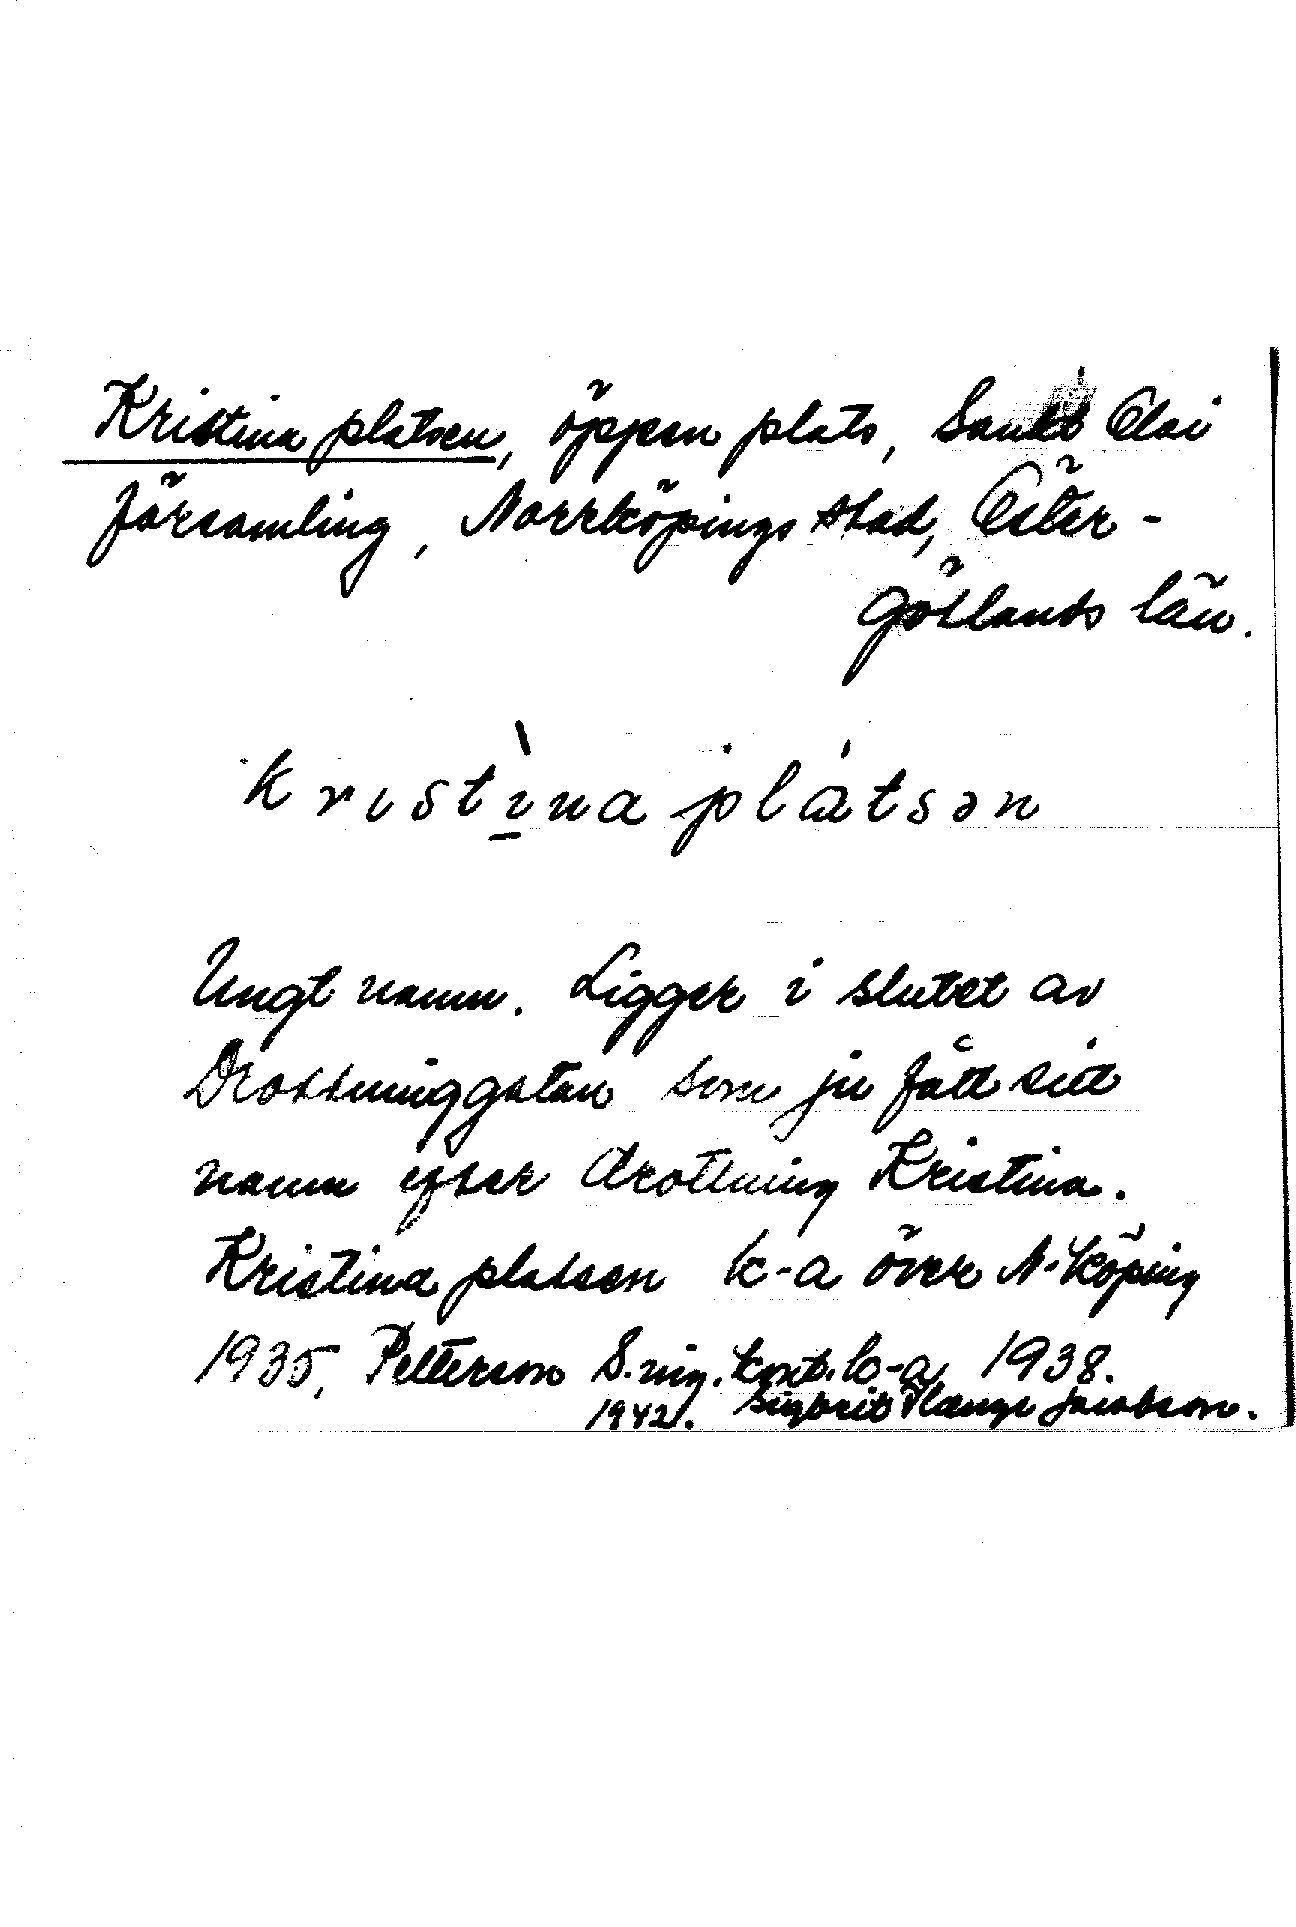 Kristina platsen, öppen plats, Sankt Olai
församling, Norrköpings stad, Öster-
götlands län.
krıstı̀na plátsən
Ungt namn. Ligger i slutet av
Drottninggatan som ju fått sitt
namn efter drottning Kristina.
Kristina platsen k-a över N-köping
1935, Petterson S. ing. kont. b-a 1938.
1942. Sigbrit Plænge Jacobson.